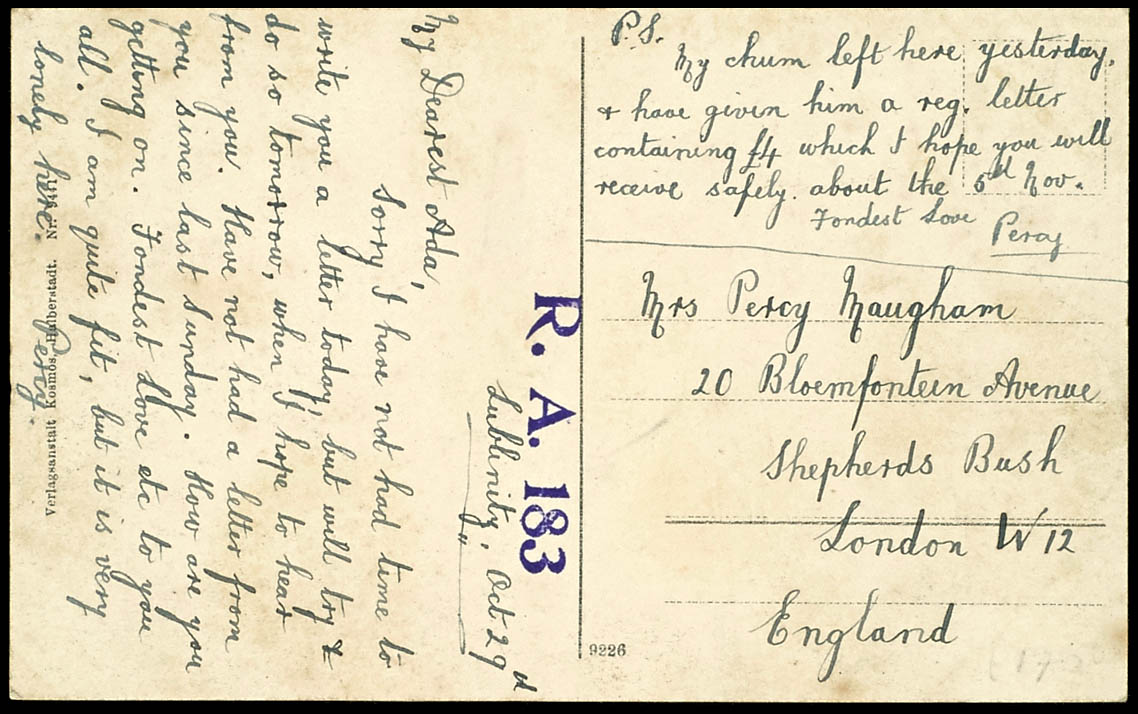 Lublinitz. Oct 29th
My Dearest Ada,
Sorry I have not had time to
write you a letter today, but will try &
do so tomorrow, when I hope to hear
from you. Have not had a letter from
you since last Sunday. How are you
getting on. Fondest Love etc to you
all. I am quite fit, but it is very
lonely here. Percy.
Verlagsanstalt Kosmos, Halberstadt. Nr.
R. A. 183
P.S.
My chum left here yesterday,
& have given him a reg. letter
containing £4 which I hope you will
receive safely. about the 5th Nov.
Fondest Love
Percy
Mrs Percy Maugham
20 Bloemfontein Avenue
Shepherds Bush
London W 12
England
9226